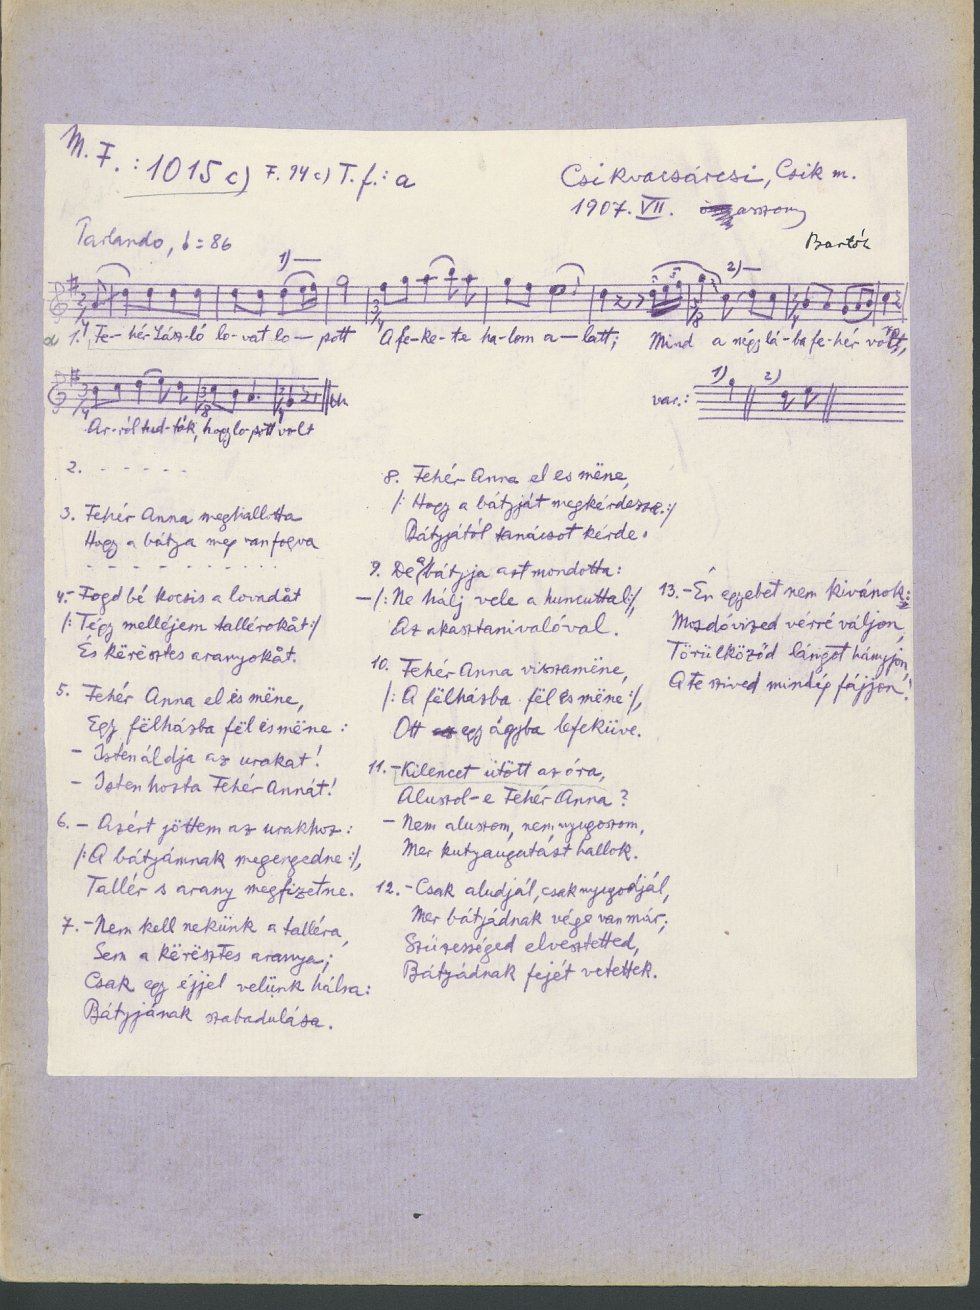 M. F. : 1015 c) F. 94 c) T. f.: a
Csikvacsárcsi, Csik m.
1907. VII. asszony
Bartók
Parlando, = 86
1)
2)
1. Fe- hér Lász-ló lo-vat lo- pott A fe-ke-te ha-lom a-latt; Mind a négy lá-ba fe-hér vót,
Ar-ról tud-ták, hogy lo-pott vólt
var.: 1) 2)
2. - - - - -
3. Fehér Anna meghallotta
Hogy a bátya meg van fogva
- - - - - - - - - - -
4. - Fogd bé kocsis a lovadåt
/: Tégy melléjem tallérokåt :/
És kërësztes aranyokåt.
5. Fehér Anna el és mëne,
Egy félházba fël és mëne :
- Isten áldja az urakat!
- Isten hozta Fehér Annát!
6. - Azért jöttem az urakhoz :
/: A bátyámnak megengedne :/,
Tallér s arany megfizetne.
7. - Nem kell nekünk a talléra,
Sem a kërësztes aranya;
Csak egy éjjel velünk hálsa:
Bátyjának szabadulása.
8. Fehér Anna el és mëne,
/: Hogy a bátyját megkérdezze :/
Bátyjától tanácsot kérde.
9. De a bátyja azt mondotta:
- /: Ne hálj vele a huncuttal :/,
Az akasztanivalóval.
10. Fehér Anna visszamëne,
/: A félházba fël és mëne :/,
Ott egy ágyba lefeküve.
11. - Kilencet ütött az óra,
Aluszol-e Fehér Anna ?
- Nem aluszom, nem nyugoszom,
Mer kutyaugatást hallok.
12. - Csak aludjál, csak nyugodjál,
Mer bátyádnak vége van már;
Szüzességed elvesztetted,
Bátyádnak fejét vetettek.
13. - Én egyebet nem kivánok:
Mozdóvized vérré váljon,
Törülköződ lángot hányjon,
A te szived mindég fájjon!